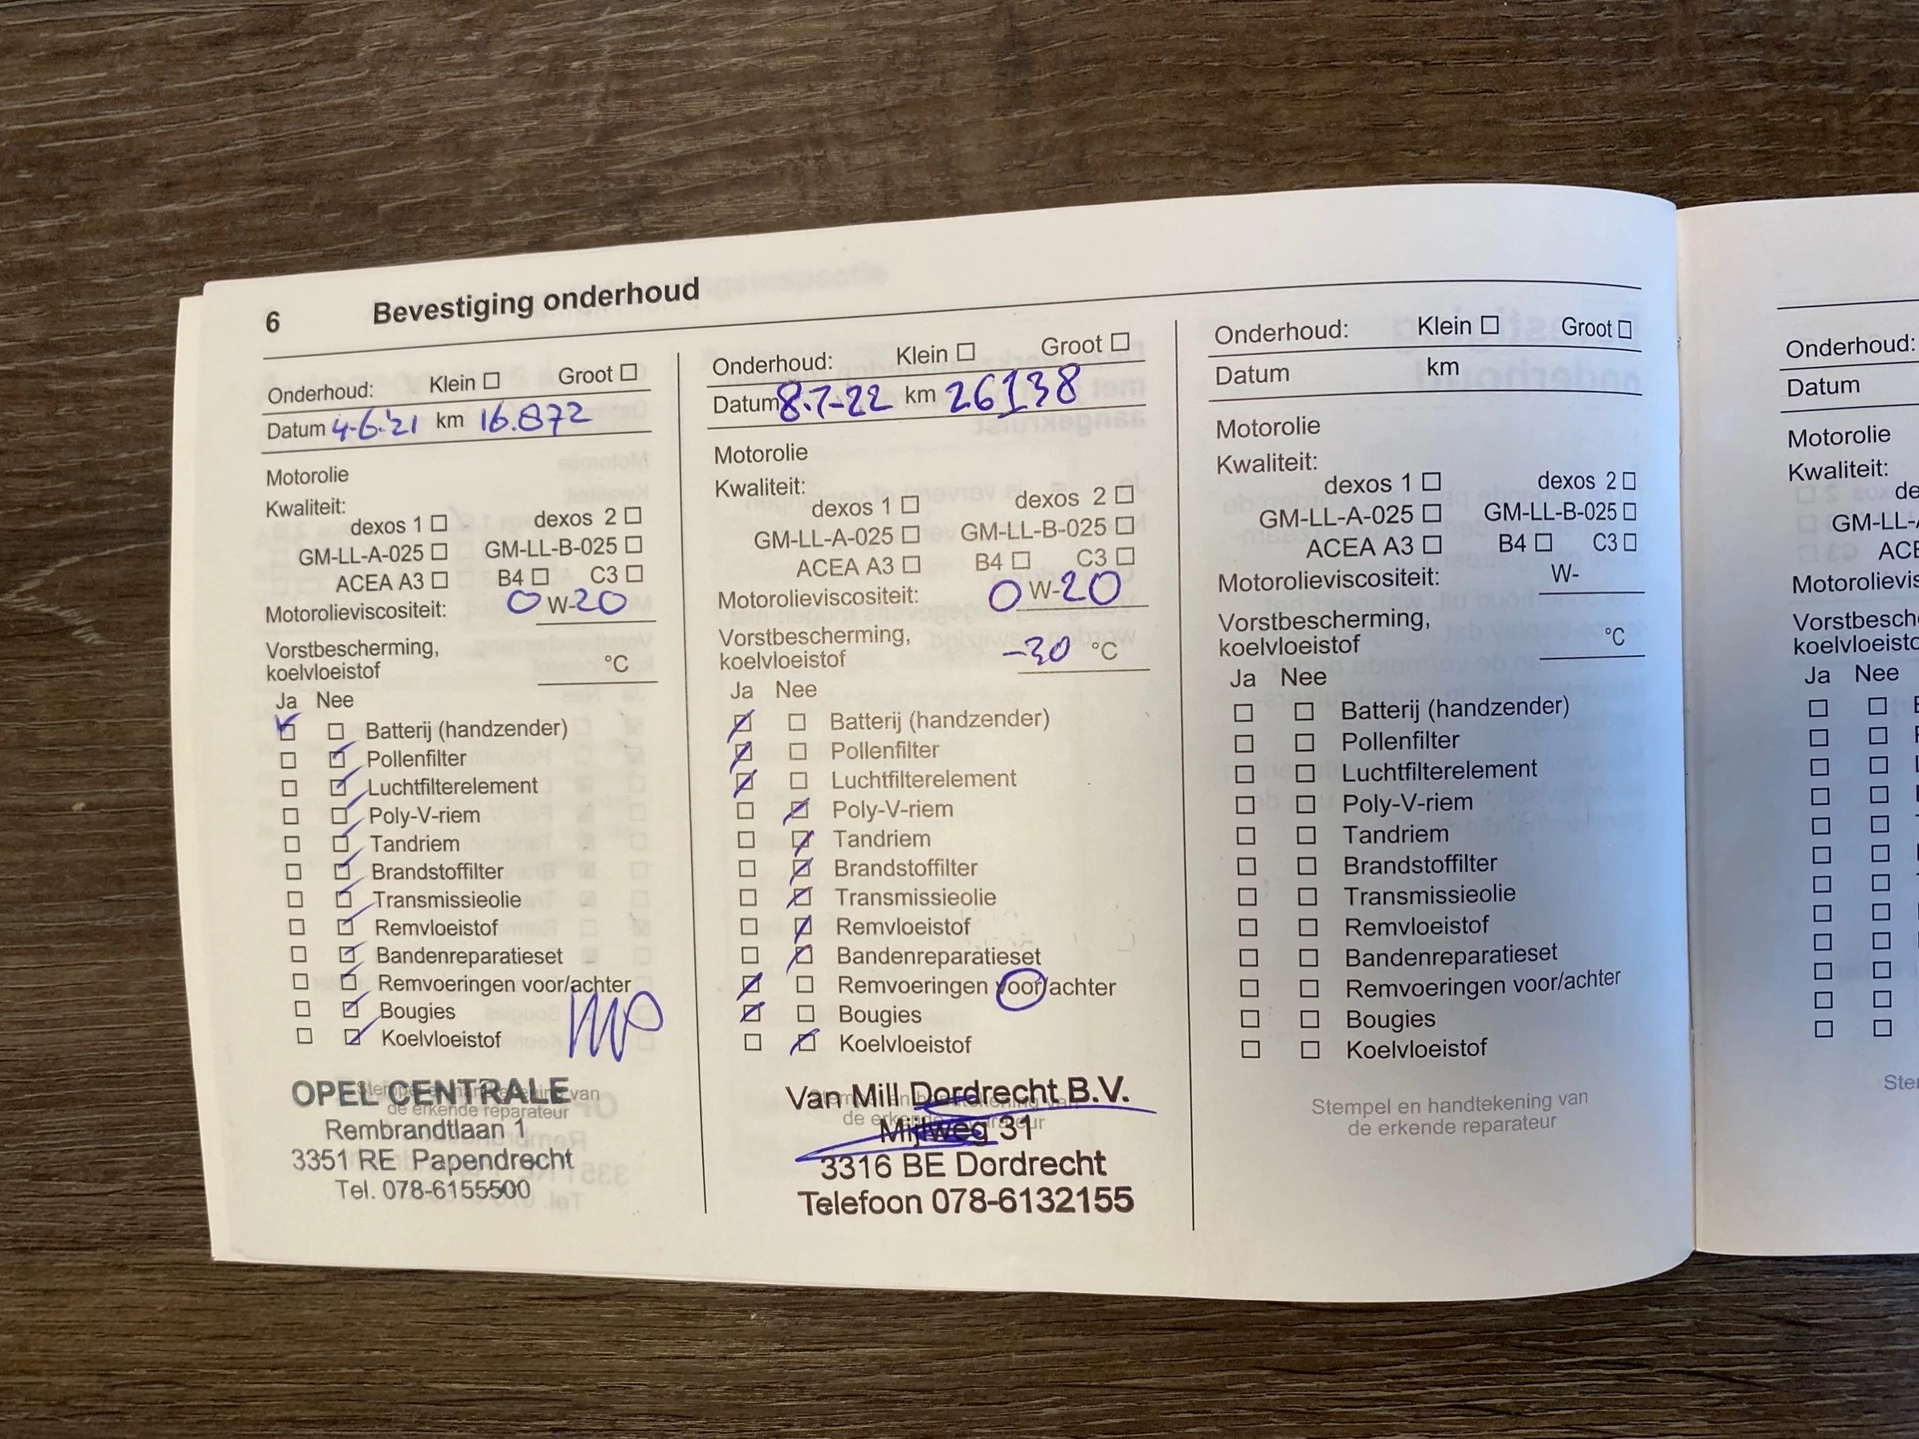 6 Bevestiging onderhoud
Onderhoud: Klein ☐ Groot ☐
Datum 4-6-'21 km 16.872
Motorolie
Kwaliteit:
dexos 1 ☐ dexos 2 ☐
GM-LL-A-025 ☐ GM-LL-B-025 ☐
ACEA A3 ☐ B4 ☐ C3 ☐
Motorolieviscositeit: 0 W-20
Vorstbescherming,
koelvloeistof °C
Ja Nee
☑ ☐ Batterij (handzender)
☐ ☑ Pollenfilter
☐ ☑ Luchtfilterelement
☐ ☑ Poly-V-riem
☐ ☑ Tandriem
☐ ☑ Brandstoffilter
☐ ☑ Transmissieolie
☐ ☑ Remvloeistof
☐ ☑ Bandenreparatieset
☐ ☑ Remvoeringen voor/achter
☐ ☑ Bougies
☐ ☑ Koelvloeistof
Stempel en handtekening van
de erkende reparateur
OPEL CENTRALE
Rembrandtlaan 1
3351 RE Papendrecht
Tel. 078-6155500
Onderhoud: Klein ☐ Groot ☐
Datum 8-7-22 km 26138
Motorolie
Kwaliteit:
dexos 1 ☐ dexos 2 ☐
GM-LL-A-025 ☐ GM-LL-B-025 ☐
ACEA A3 ☐ B4 ☐ C3 ☐
Motorolieviscositeit: 0 W-20
Vorstbescherming,
koelvloeistof -30 °C
Ja Nee
☑ ☐ Batterij (handzender)
☑ ☐ Pollenfilter
☑ ☐ Luchtfilterelement
☐ ☑ Poly-V-riem
☐ ☑ Tandriem
☐ ☑ Brandstoffilter
☐ ☑ Transmissieolie
☐ ☑ Remvloeistof
☐ ☑ Bandenreparatieset
☑ ☐ Remvoeringen voor/achter
☑ ☐ Bougies
☐ ☑ Koelvloeistof
Stempel en handtekening van
de erkende reparateur
Van Mill Dordrecht B.V.
Mijlweg 31
3316 BE Dordrecht
Telefoon 078-6132155
Onderhoud: Klein ☐ Groot ☐
Datum km
Motorolie
Kwaliteit:
dexos 1 ☐ dexos 2 ☐
GM-LL-A-025 ☐ GM-LL-B-025 ☐
ACEA A3 ☐ B4 ☐ C3 ☐
Motorolieviscositeit: W-
Vorstbescherming,
koelvloeistof °C
Ja Nee
☐ ☐ Batterij (handzender)
☐ ☐ Pollenfilter
☐ ☐ Luchtfilterelement
☐ ☐ Poly-V-riem
☐ ☐ Tandriem
☐ ☐ Brandstoffilter
☐ ☐ Transmissieolie
☐ ☐ Remvloeistof
☐ ☐ Bandenreparatieset
☐ ☐ Remvoeringen voor/achter
☐ ☐ Bougies
☐ ☐ Koelvloeistof
Stempel en handtekening van
de erkende reparateur
Onderhoud:
Datum
Motorolie
Kwaliteit:
de
GM-LL-
ACE
Motorolievis
Vorstbesch
koelvloeisto
Ja Nee
Ste